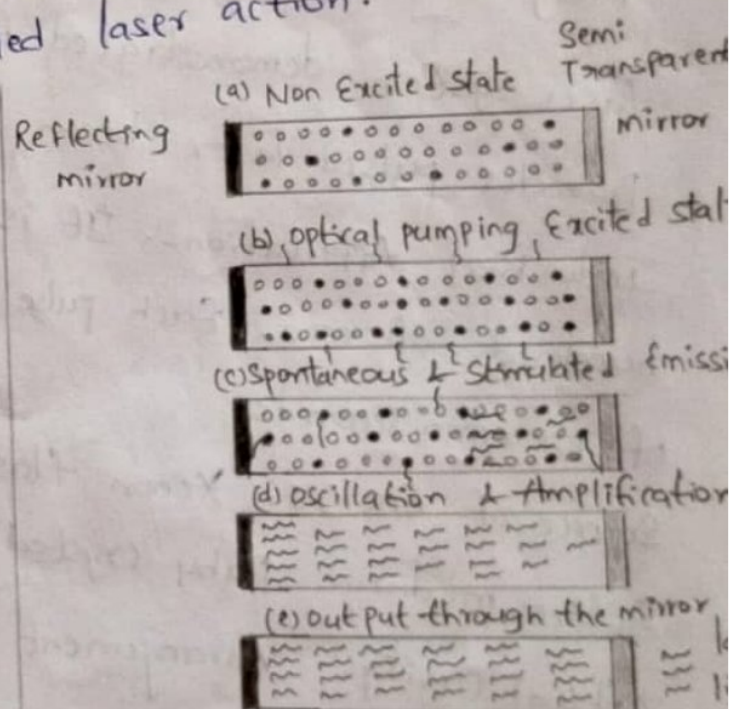 laser action.
(a) Non Excited state
Semi
Transparent
mirror
Reflecting
mirror
(b) optical pumping, Excited stat
(c) Spontaneous & Stimulated Emissi
(d) oscillation & Amplification
(e) output through the mirror